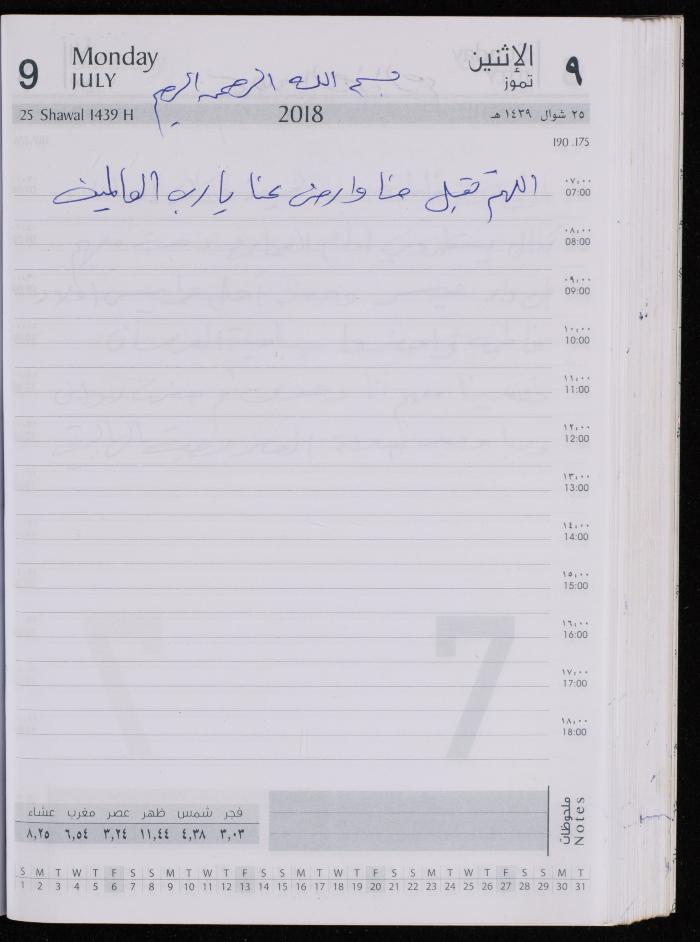 9 Monday JULY الإثنين تموز ٩
بسم الله الرحمن الرحيم
25 Shawal 1439 H 2018 ٢٥ شوال ١٤٣٩ هـ
190 .175
اللهم تقبل منا وارض عنا يا رب العالمين
٠٧:٠٠
07:00
٠٨:٠٠
08:00
٠٩:٠٠
09:00
١٠:٠٠
10:00
١١:٠٠
11:00
١٢:٠٠
12:00
١٣:٠٠
13:00
١٤:٠٠
14:00
١٥:٠٠
15:00
١٦:٠٠
16:00
١٧:٠٠
17:00
١٨:٠٠
18:00
7
ملحوظات
Notes
فجر شمس ظهر عصر مغرب عشاء
٣,٠٣ ٤,٣٨ ١١,٤٤ ٣,٢٤ ٦,٥٤ ٨,٢٥
S M T W T F S S M T W T F S S M T W T F S S M T W T F S S M T
1 2 3 4 5 6 7 8 9 10 11 12 13 14 15 16 17 18 19 20 21 22 23 24 25 26 27 28 29 30 31